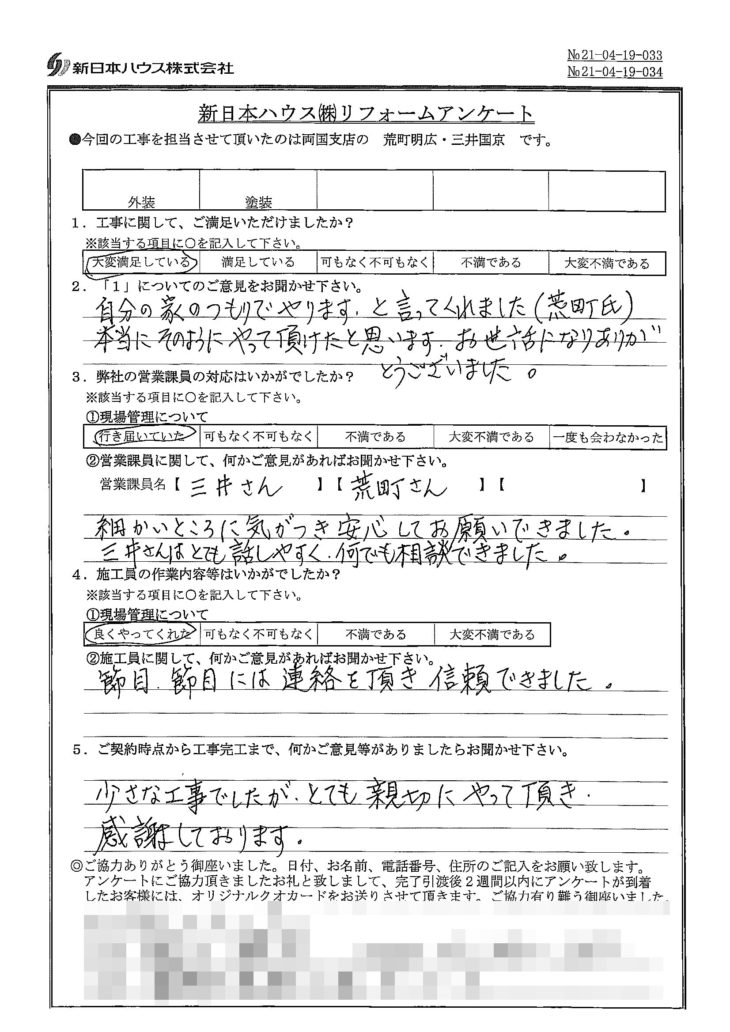 新日本ハウス株式会社
№21-04-19-033
№21-04-19-034
新日本ハウス㈱リフォームアンケート
●今回の工事を担当させて頂いたのは両国支店の 荒町明広・三井国京 です。
外装 塗装
1．工事に関して、ご満足いただけましたか？
※該当する項目に○を記入して下さい。
大変満足している 満足している 可もなく不可もなく 不満である 大変不満である
2．「1」についてのご意見をお聞かせ下さい。
自分の家のつもりでやります、と言ってくれました(荒町氏)
本当にそのようにやって頂けたと思います。お世話になりありが
とうございました。
3．弊社の営業課員の対応はいかがでしたか？
※該当する項目に○を記入して下さい。
①現場管理について
行き届いていた 可もなく不可もなく 不満である 大変不満である 一度も会わなかった
②営業課員に関して、何かご意見があればお聞かせ下さい。
営業課員名【 三井さん 】【 荒町さん 】【 】
細かいところに気がつき安心してお願いできました。
三井さんはとても話しやすく、何でも相談できました。
4．施工員の作業内容等はいかがでしたか？
※該当する項目に○を記入して下さい。
①現場管理について
良くやってくれた 可もなく不可もなく 不満である 大変不満である
②施工員に関して、何かご意見があればお聞かせ下さい。
節目、節目には連絡を頂き信頼できました。
5．ご契約時点から工事完工まで、何かご意見等がありましたらお聞かせ下さい。
少さな工事でしたが、とても親切にやって頂き、
感謝しております。
◎ご協力ありがとう御座いました。日付、お名前、電話番号、住所のご記入をお願い致します。
アンケートにご協力頂きましたお礼と致しまして、完了引渡後2週間以内にアンケートが到着
したお客様には、オリジナルクオカードをお送りさせて頂きます。ご協力有り難う御座いました。